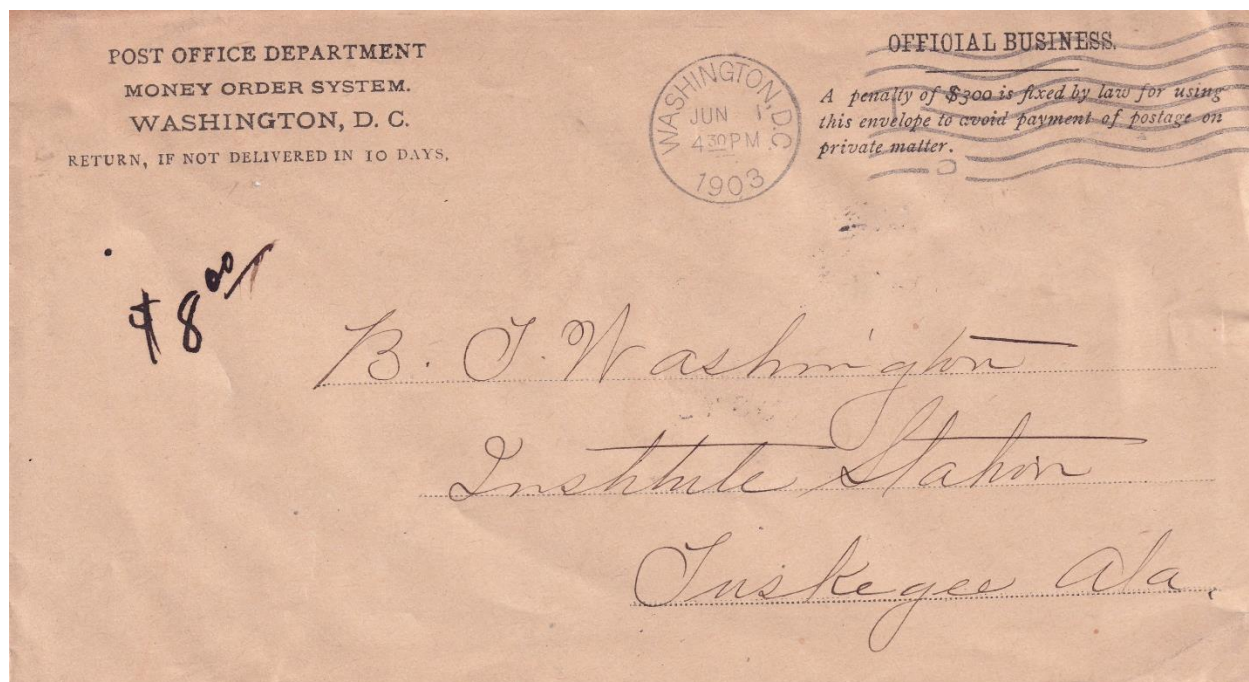 POST OFFICE DEPARTMENT
MONEY ORDER SYSTEM.
WASHINGTON, D. C.
RETURN, IF NOT DELIVERED IN 10 DAYS.
WASHINGTON, D.C.
JUN 1
4 30 PM
1903
OFFICIAL BUSINESS.
A penalty of $300 is fixed by law for using
this envelope to avoid payment of postage on
private matter.
$8 00
B. T. Washington
Institute Station
Tuskegee Ala.